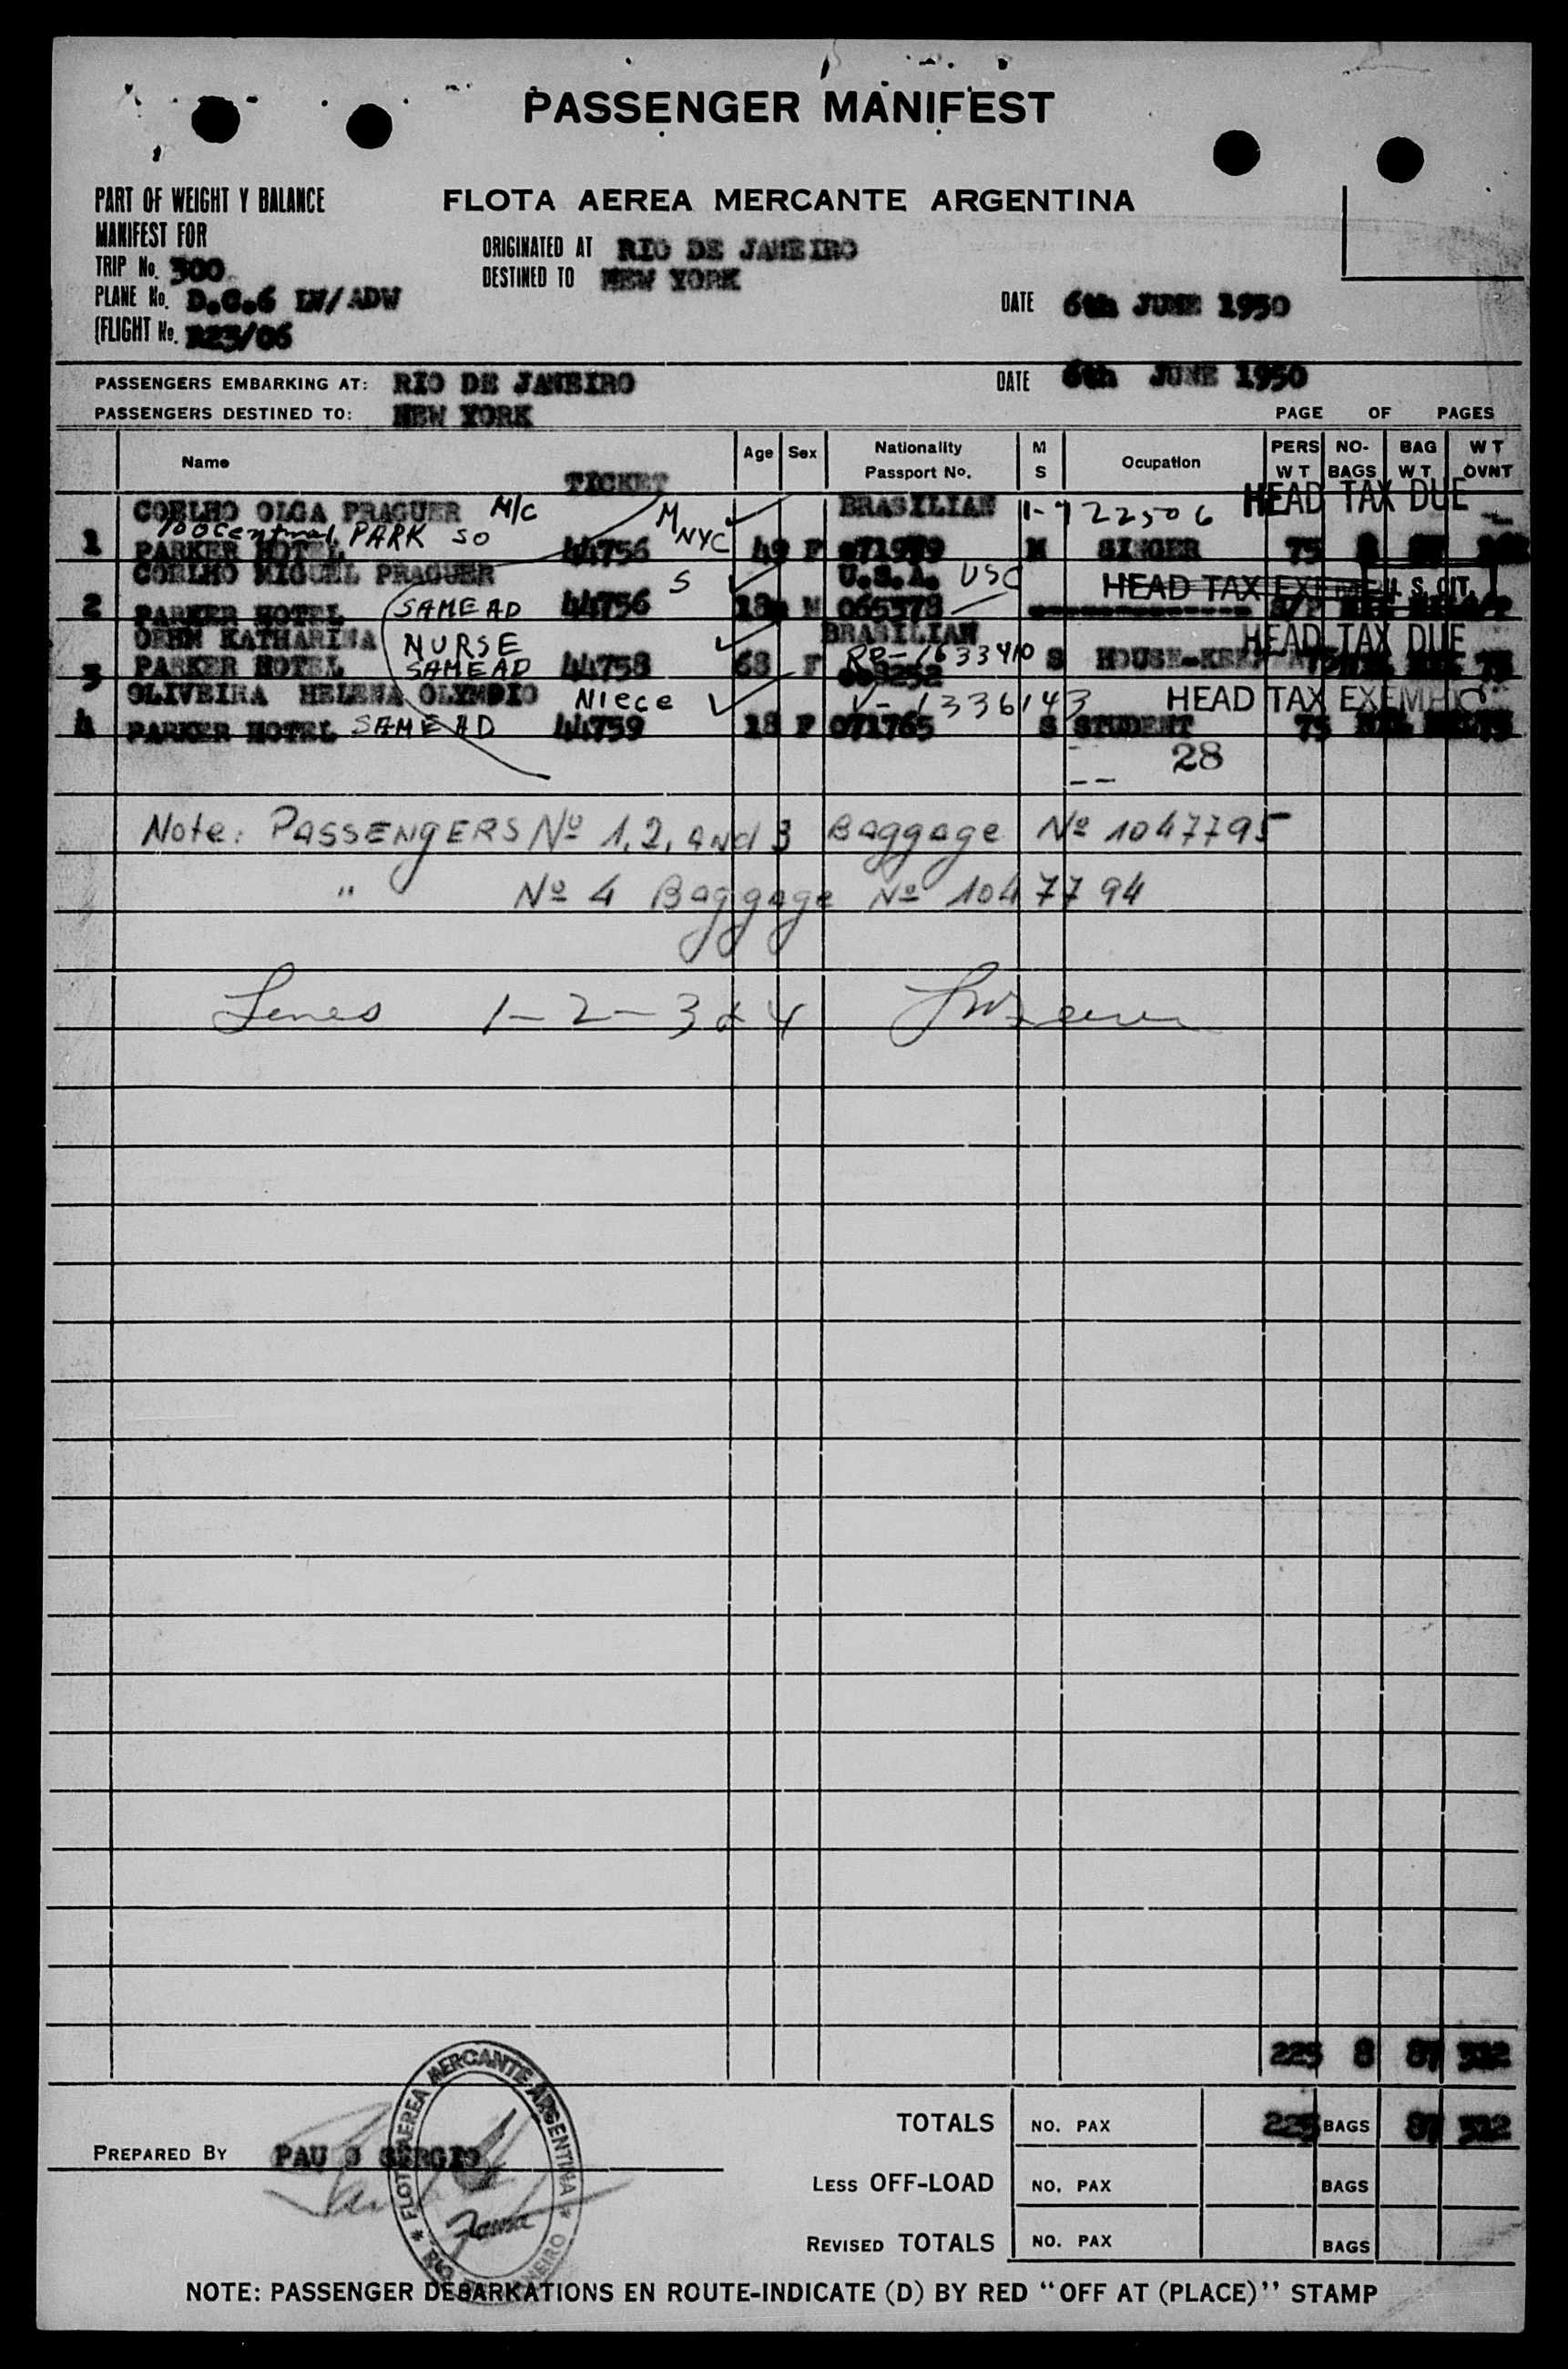 PASSENGER MANIFEST
PART OF WEIGHT Y BALANCE
MANIFEST FOR
TRIP No. 300
PLANE No. D.C.6 LV/ADW
(FLIGHT No. R23/06
FLOTA AEREA MERCANTE ARGENTINA
ORIGINATED AT RIO DE JANEIRO
DESTINED TO NEW YORK
DATE 6th JUNE 1950
PASSENGERS EMBARKING AT: RIO DE JANEIRO DATE 6th JUNE 1950
PASSENGERS DESTINED TO: NEW YORK PAGE OF PAGES
Name TICKET Age Sex Nationality Passport No. M S Ocupation PERS WT NO-BAGS BAG WT WT OVNT
COELHO OLGA PRAGUER M/C M BRASILIAN 1-722506 HEAD TAX DUE
100 Central PARK SO NYC
1 PARKER HOTEL 44756 49 F M SINGER 75
COELHO MIGUEL PRAGUER S U.S.A. USC HEAD TAX U.S. CIT.
2 PARKER HOTEL SAME AD 44756 M 065378
KATHARINA NURSE BRASILIAN HEAD TAX DUE
RP-1633410
3 PARKER HOTEL SAME AD 44758 68 F S HOUSE-KEEPER 75
OLIVEIRA HELENA OLYMPIO Niece V-1336143 HEAD TAX EXEMPT
4 PARKER HOTEL SAME AD 44759 18 F 071765 S STUDENT 75 NIL NIL 75
28
Note: PASSENGERS Nº 1, 2, and 3 Baggage Nº 1047795
" Nº 4 Baggage Nº 1047794
Lines 1-2-3 & 4
225 8 87 312
TOTALS NO. PAX 225 BAGS 87 312
PREPARED BY PAU O SERGIO
LESS OFF-LOAD NO. PAX BAGS
REVISED TOTALS NO. PAX BAGS
FLOTA AEREA MERCANTE ARGENTINA * RIO DE JANEIRO *
NOTE: PASSENGER DEBARKATIONS EN ROUTE-INDICATE (D) BY RED "OFF AT (PLACE)" STAMP